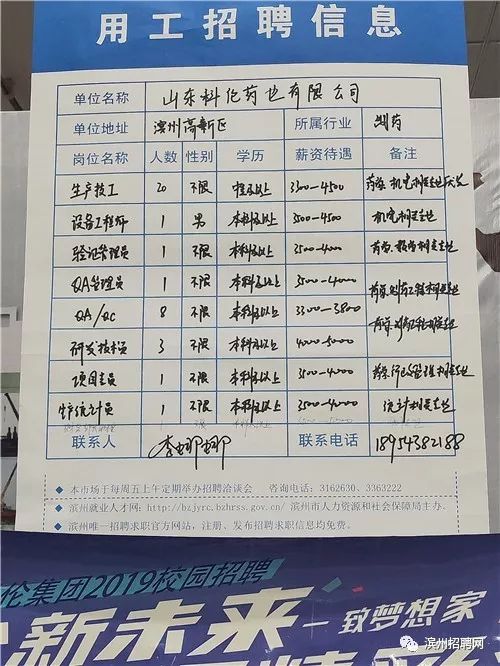 用工招聘信息
单位名称 山东科伦药业有限公司
单位地址 滨州高新区 所属行业 制药
岗位名称 人数 性别 学历 薪资待遇 备注
生产技工 20 不限 专及以上 3300—4500 药学、机电相关专业
设备工程师 1 男 本科及以上 3500—4500 机电相关专业
验证管理员 1 不限 本科及以上 3500—4000 药学、相关专业
QA管理员 1 不限 本科及以上 3500—4000 药学、制药工程相关专业
QA/QC 8 不限 本科及以上 3300—3800 药学、制药工程相关专业
研发技术员 3 不限 本科及以上 4000—5000
项目专员 1 不限 本科及以上 3500—4000 药学、行政管理相关专业
生产统计员 1 不限 本科及以上 3500—4000 统计相关专业
联系人 李娜娜 联系电话 18954382188
◆ 本市场于每周五上午定期举办招聘洽谈会 咨询电话：3162630、3363222
◆ 滨州就业人才网：http://bzjyrc.bzhrss.gov.cn/ 滨州市人力资源和社会保障局主办。
滨州唯一招聘求职官方网站，注册、发布招聘求职信息均免费。
伦集团2019校园招聘
新未来 一致梦想家
滨州招聘网